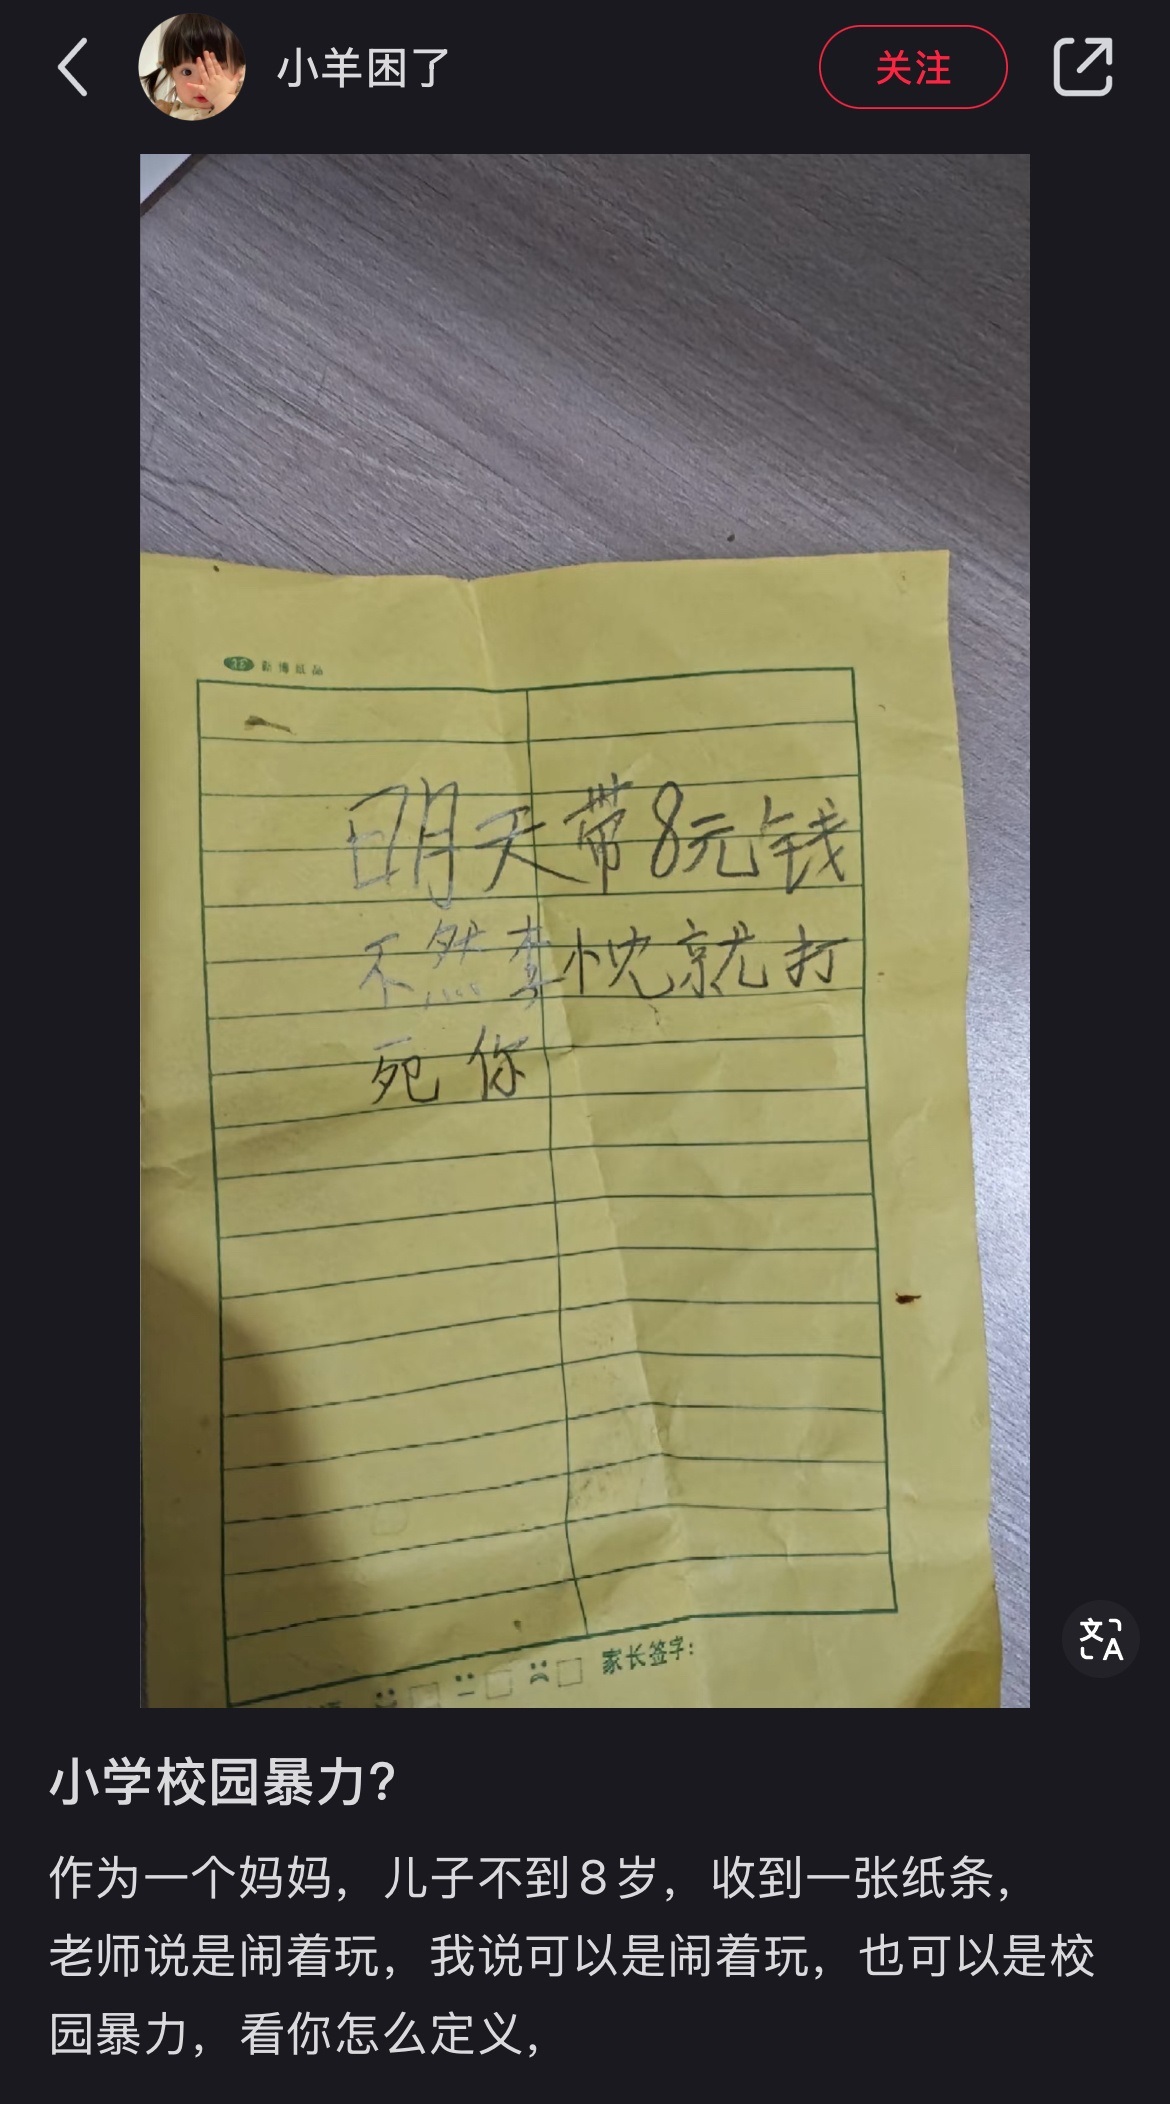 小羊困了
关注
彩博纸品
明天带8元钱
不然李忱就打
死你
家长签字:
文A
小学校园暴力?
作为一个妈妈，儿子不到8岁，收到一张纸条，
老师说是闹着玩，我说可以是闹着玩，也可以是校
园暴力，看你怎么定义，